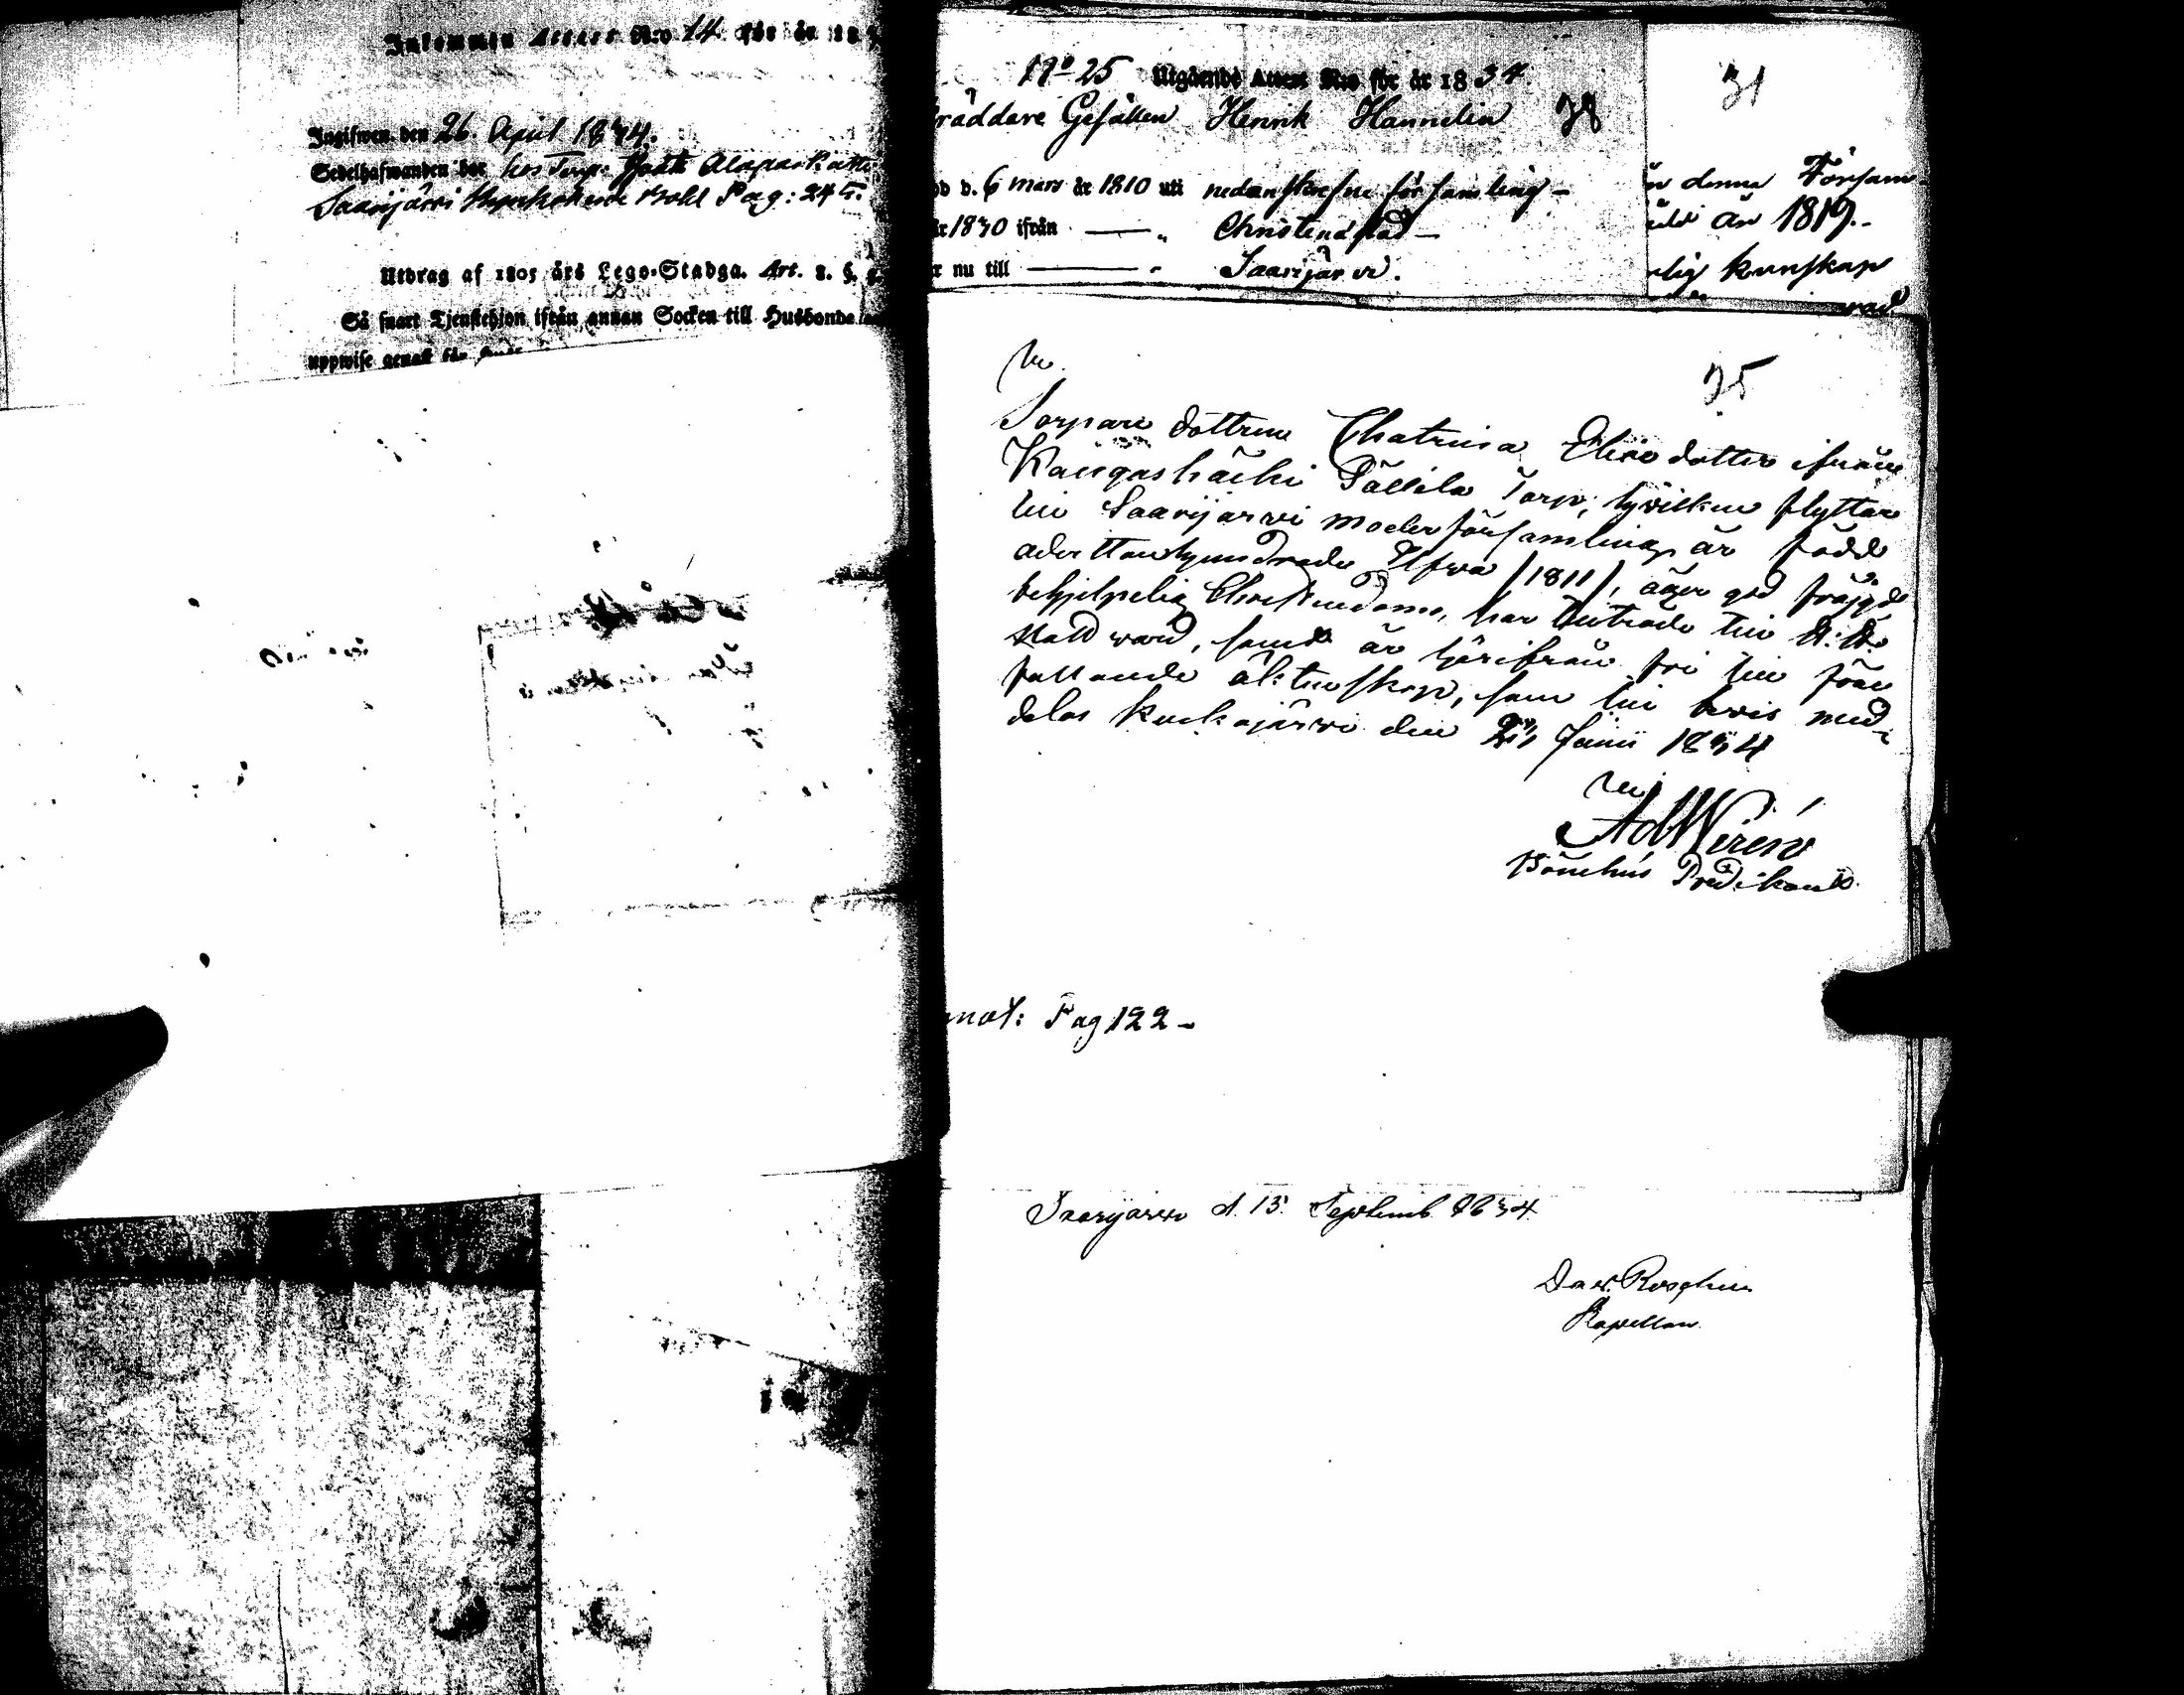 Inkommen Attest N:o 14 för år 18
Ingifwen den 26 April 1834.
Sedelhafwanden bor hos Torp:
Saarijärvi Pag: 245.
Utdrag af 1805 års Lego-Stadga. Art. 2. §.
Så snart Tjenstehjon ifrån annan Socken till Husbonde
uppwise genast
N:o 25 Utgående Attest N:o för år 1834
räddare Gesällen Henrik Hannelin 38
d. 6 mars år 1810 uti nedanskrefne församling -
1830 ifrån — " Christinastad -
r nu till — " Saarijärvi.
31
denna Försam-
år 1819.
lig kunskap
35
Torpare dottren Chatrina Elias dotter ifrån
Kangashäcki Pällilä Torp, hvilken flyttar
till Saarijärvi moderförsamling, är född
adertonhundrade Elfwa /1811/, äger god frägd
behjelpelig Christendom, har tilträde till H: H:
Nattward, samt är härifrån fri till före
fallande äktenskap, som till bevis med-
delas Kuckajärvi den Junii 1834
Ad Wirén
Bönehus Predikant.
Pag 122 -
Saarijärvi d. 15 Septemb. 1834.
Dav. Roschier
Kapellan.